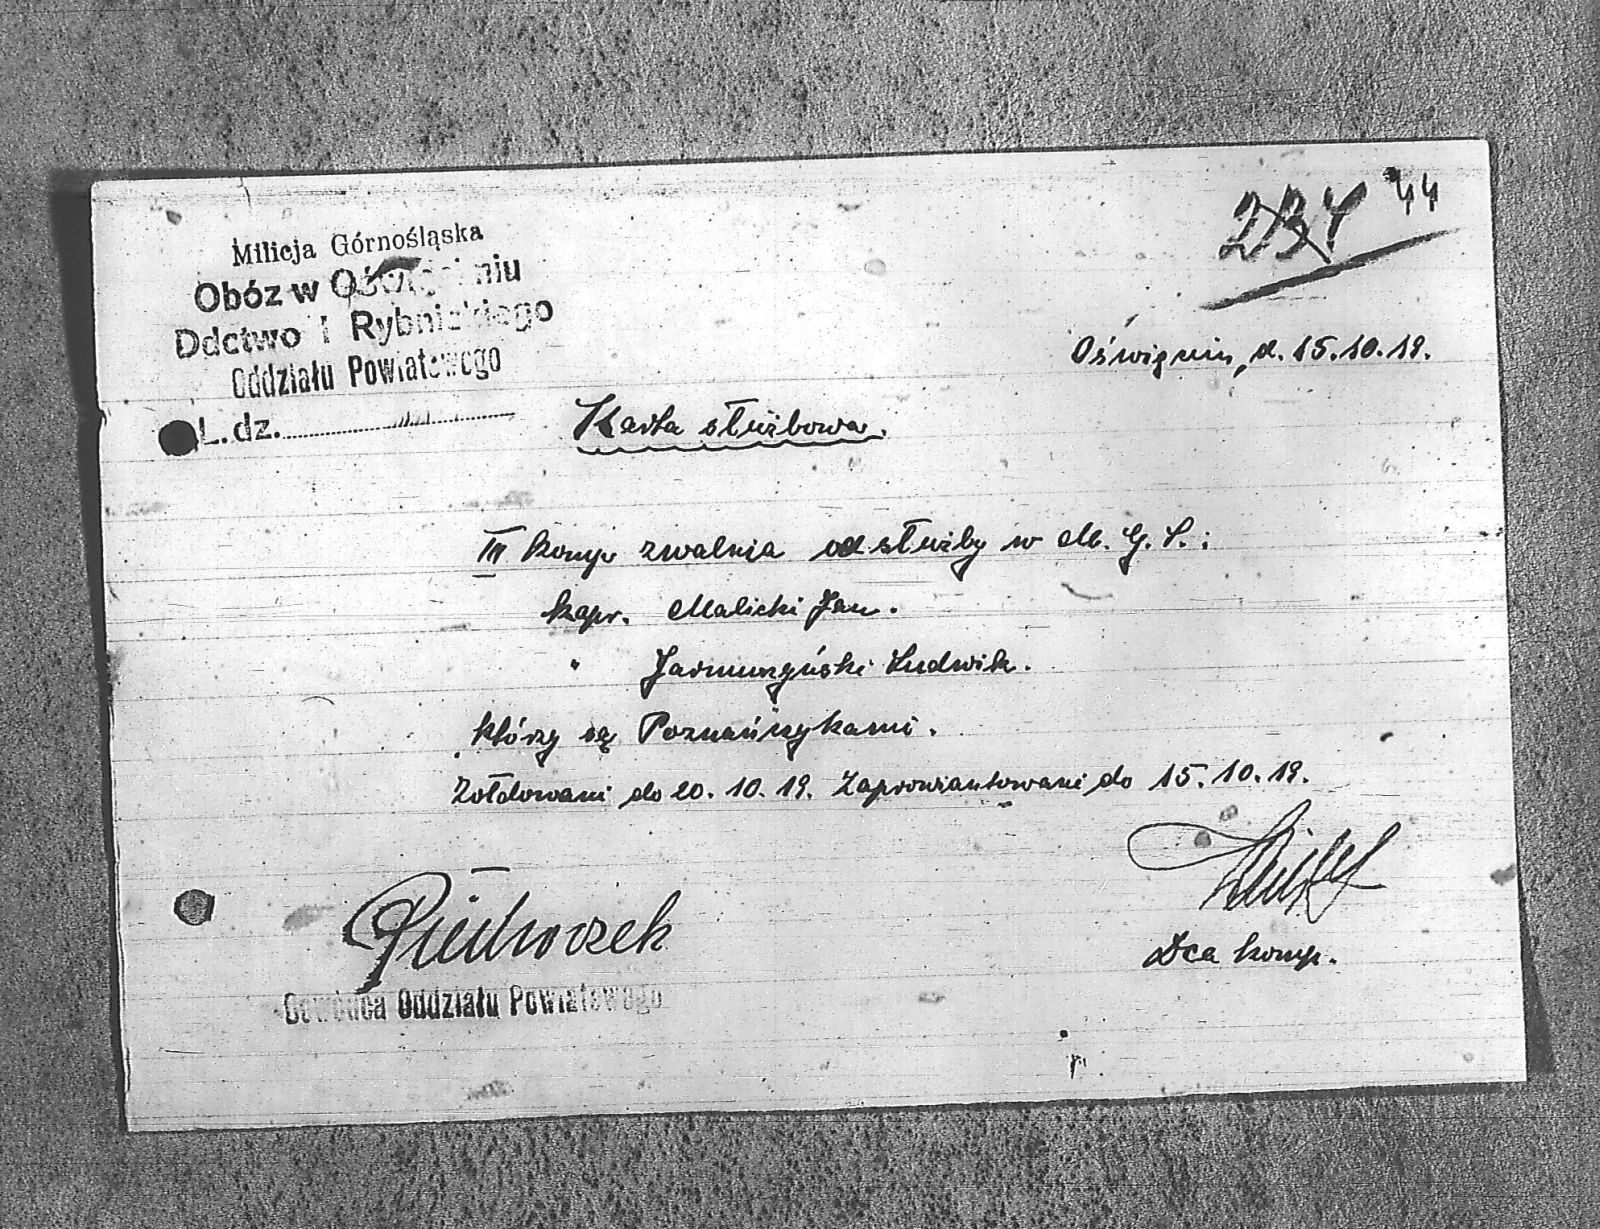 Milicja Górnośląska
Obóz w Oświęcimiu
Ddctwo I Rybnickiego
Oddziału Powiatowego
L. dz.
234 44
Oświęcim, d. 15.10.19.
Karta służbowa.
III komp zwalnia od służby w M. G. S.:
kapr. Malicki Jan.
" Jarmuszyński Ludwik.
którzy są Poznańczykami.
Żołdowani do 20.10.19. Zaprowiantowani do 15.10.19.
Dca komp.
Dowódca Oddziału Powiatowego